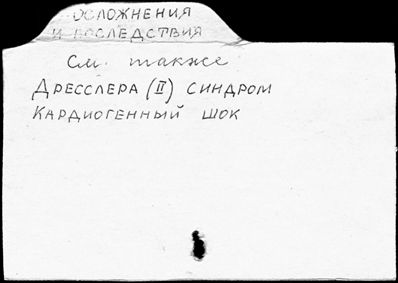 ОСЛОЖНЕНИЯ
И ПОСЛЕДСТВИЯ
См. также
ДРЕССЛЕРА (II) СИНДРОМ
КАРДИОГЕННЫЙ ШОК